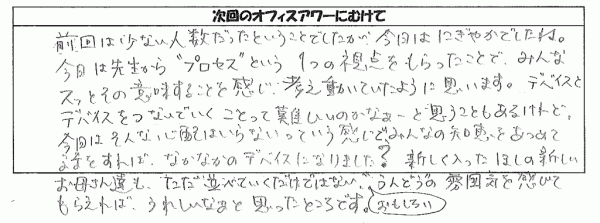 次回のオフィスアワーにむけて
前回は少ない人数だったということでしたが今日はにぎやかでしたね。
今日は先生から"プロセス"という1つの視点をもらったことで、みんな
スッとその意味することを感じ、考え動いていたように思います。デバイスと
デバイスをつないでいくことって難しいのかなぁーと思うこともあるけれど、
今回はそんな心配はいらないっていう感じで、みんなの知恵をあつめて
話をすれば、なかなかのデバイスになりました? 新しく入った ほしの新しい
お母さん達も、"ただ並べていくだけではない"、うんどうの雰囲気を感じて
もらえれば、うれしいなぁと思ったところです。おもしろい